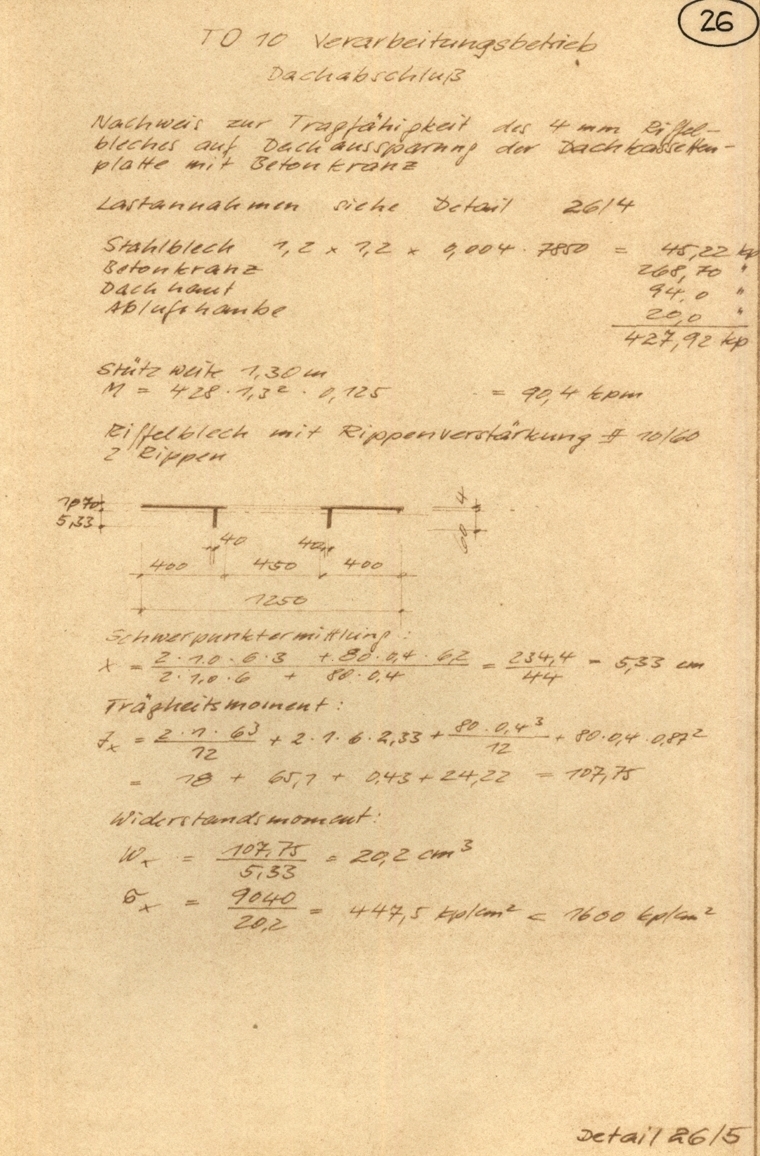 26
TO 10 Verarbeitungsbetrieb
Dachabschluß
Nachweis zur Tragfähigkeit des 4 mm Riffel-
bleches auf Dachaussparung der Dachkassetten-
platte mit Betonkranz
Lastannahmen siehe Detail 26/4
Stahlblech 1,2 x 1,2 x 0,004 · 7850 = 45,22 kp
Betonkranz 268,70 "
Dachhaut 94,0 "
Ablufthaube 20,0 "
427,92 kp
Stützweite 1,30 m
M = 428 · 1,3² · 0,125 = 90,4 kpm
Riffelblech mit Rippenverstärkung # 10/60
2 Rippen
1070
5,33
4
60
40 40
400 450 400
1250
Schwerpunktermittlung:
x = (2 · 1,0 · 6 · 3 + 80 · 0,4 · 6,2) / (2 · 1,0 · 6 + 80 · 0,4) = 234,4 / 44 = 5,33 cm
Trägheitsmoment:
Jx = 2 · 1 · 6³ / 12 + 2 · 1 · 6 · 2,33 + 80 · 0,4³ / 12 + 80 · 0,4 · 0,87²
= 18 + 65,1 + 0,43 + 24,22 = 107,75
Widerstandsmoment:
Wx = 107,75 / 5,33 = 20,2 cm³
σx = 9040 / 20,2 = 447,5 kp/cm² < 1600 kp/cm²
Detail 26/5